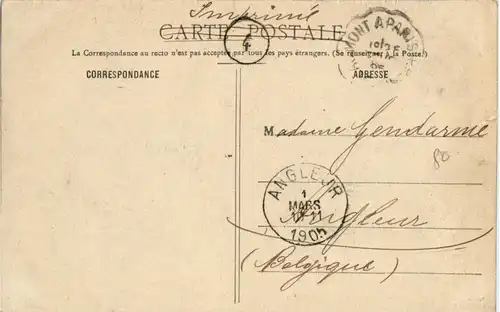 Imprimé
CARTE POSTALE
4
La Correspondance au recto n'est pas acceptée par tous les pays étrangers. (Se renseigner à la Poste.)
CORRESPONDANCE
ADRESSE
MONT A PARIS
Madame Gendarme
80
ANGLEUR
1
MARS
10-11
1905
Angleur
(Belgique)